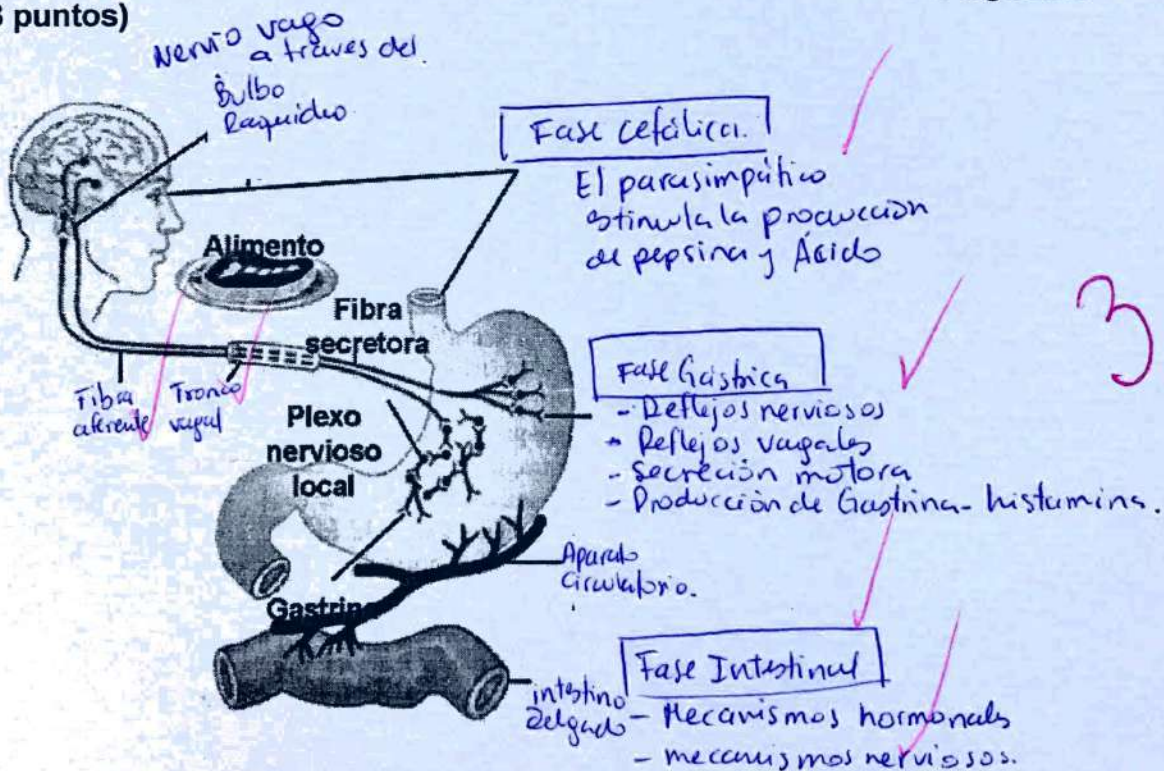 3 puntos)
Nervio vago
a traves del
Bulbo
Raquideo
Fase Cefálica.
El parasimpático
stimula la producción
de pepsina y Ácido
Alimento
Fibra
secretora
Fibra
aferente
Tronco
vagal
3
Fase Gástrica
- Reflejos nerviosos
- Reflejos vagales
- Secreción motora
- Producción de Gastrina - histamina.
Plexo
nervioso
local
Aparato
Circulatorio.
Gastrina
Fase Intestinal
intestino
Delgado
- Mecanismos hormonales
- mecanismos nerviosos.